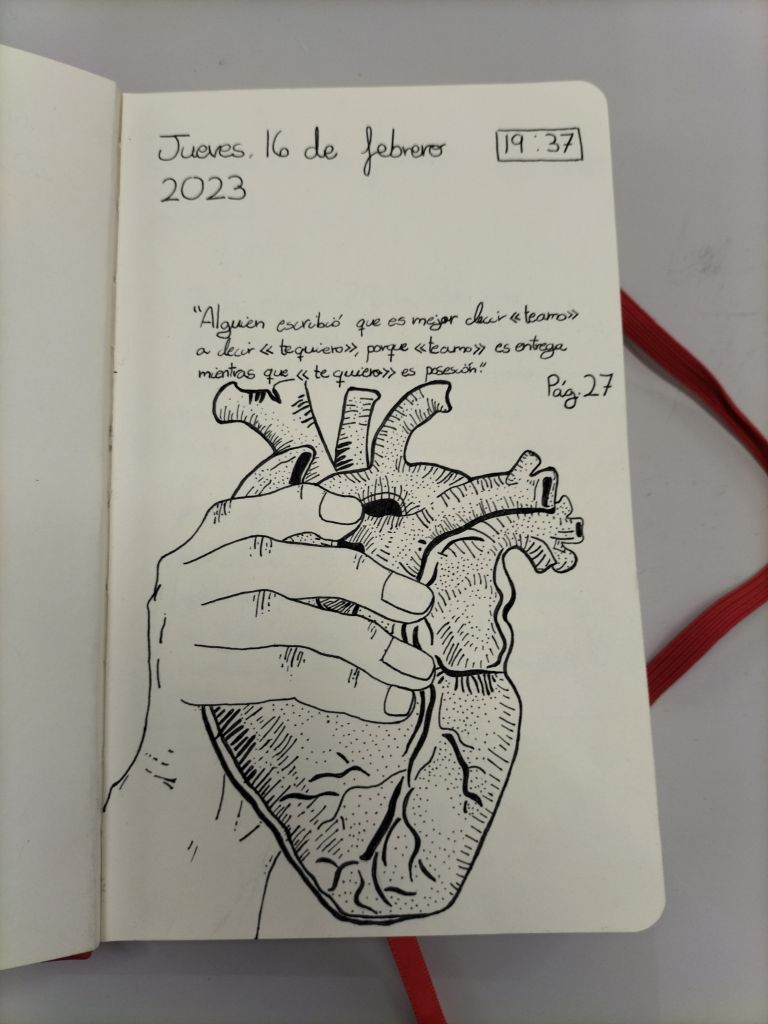 Jueves, 16 de febrero
19:37
2023
"Alguien escribió que es mejor decir «te amo»
a decir «te quiero», porque «te amo» es entrega
mientras que «te quiero» es posesión".
Pág. 27